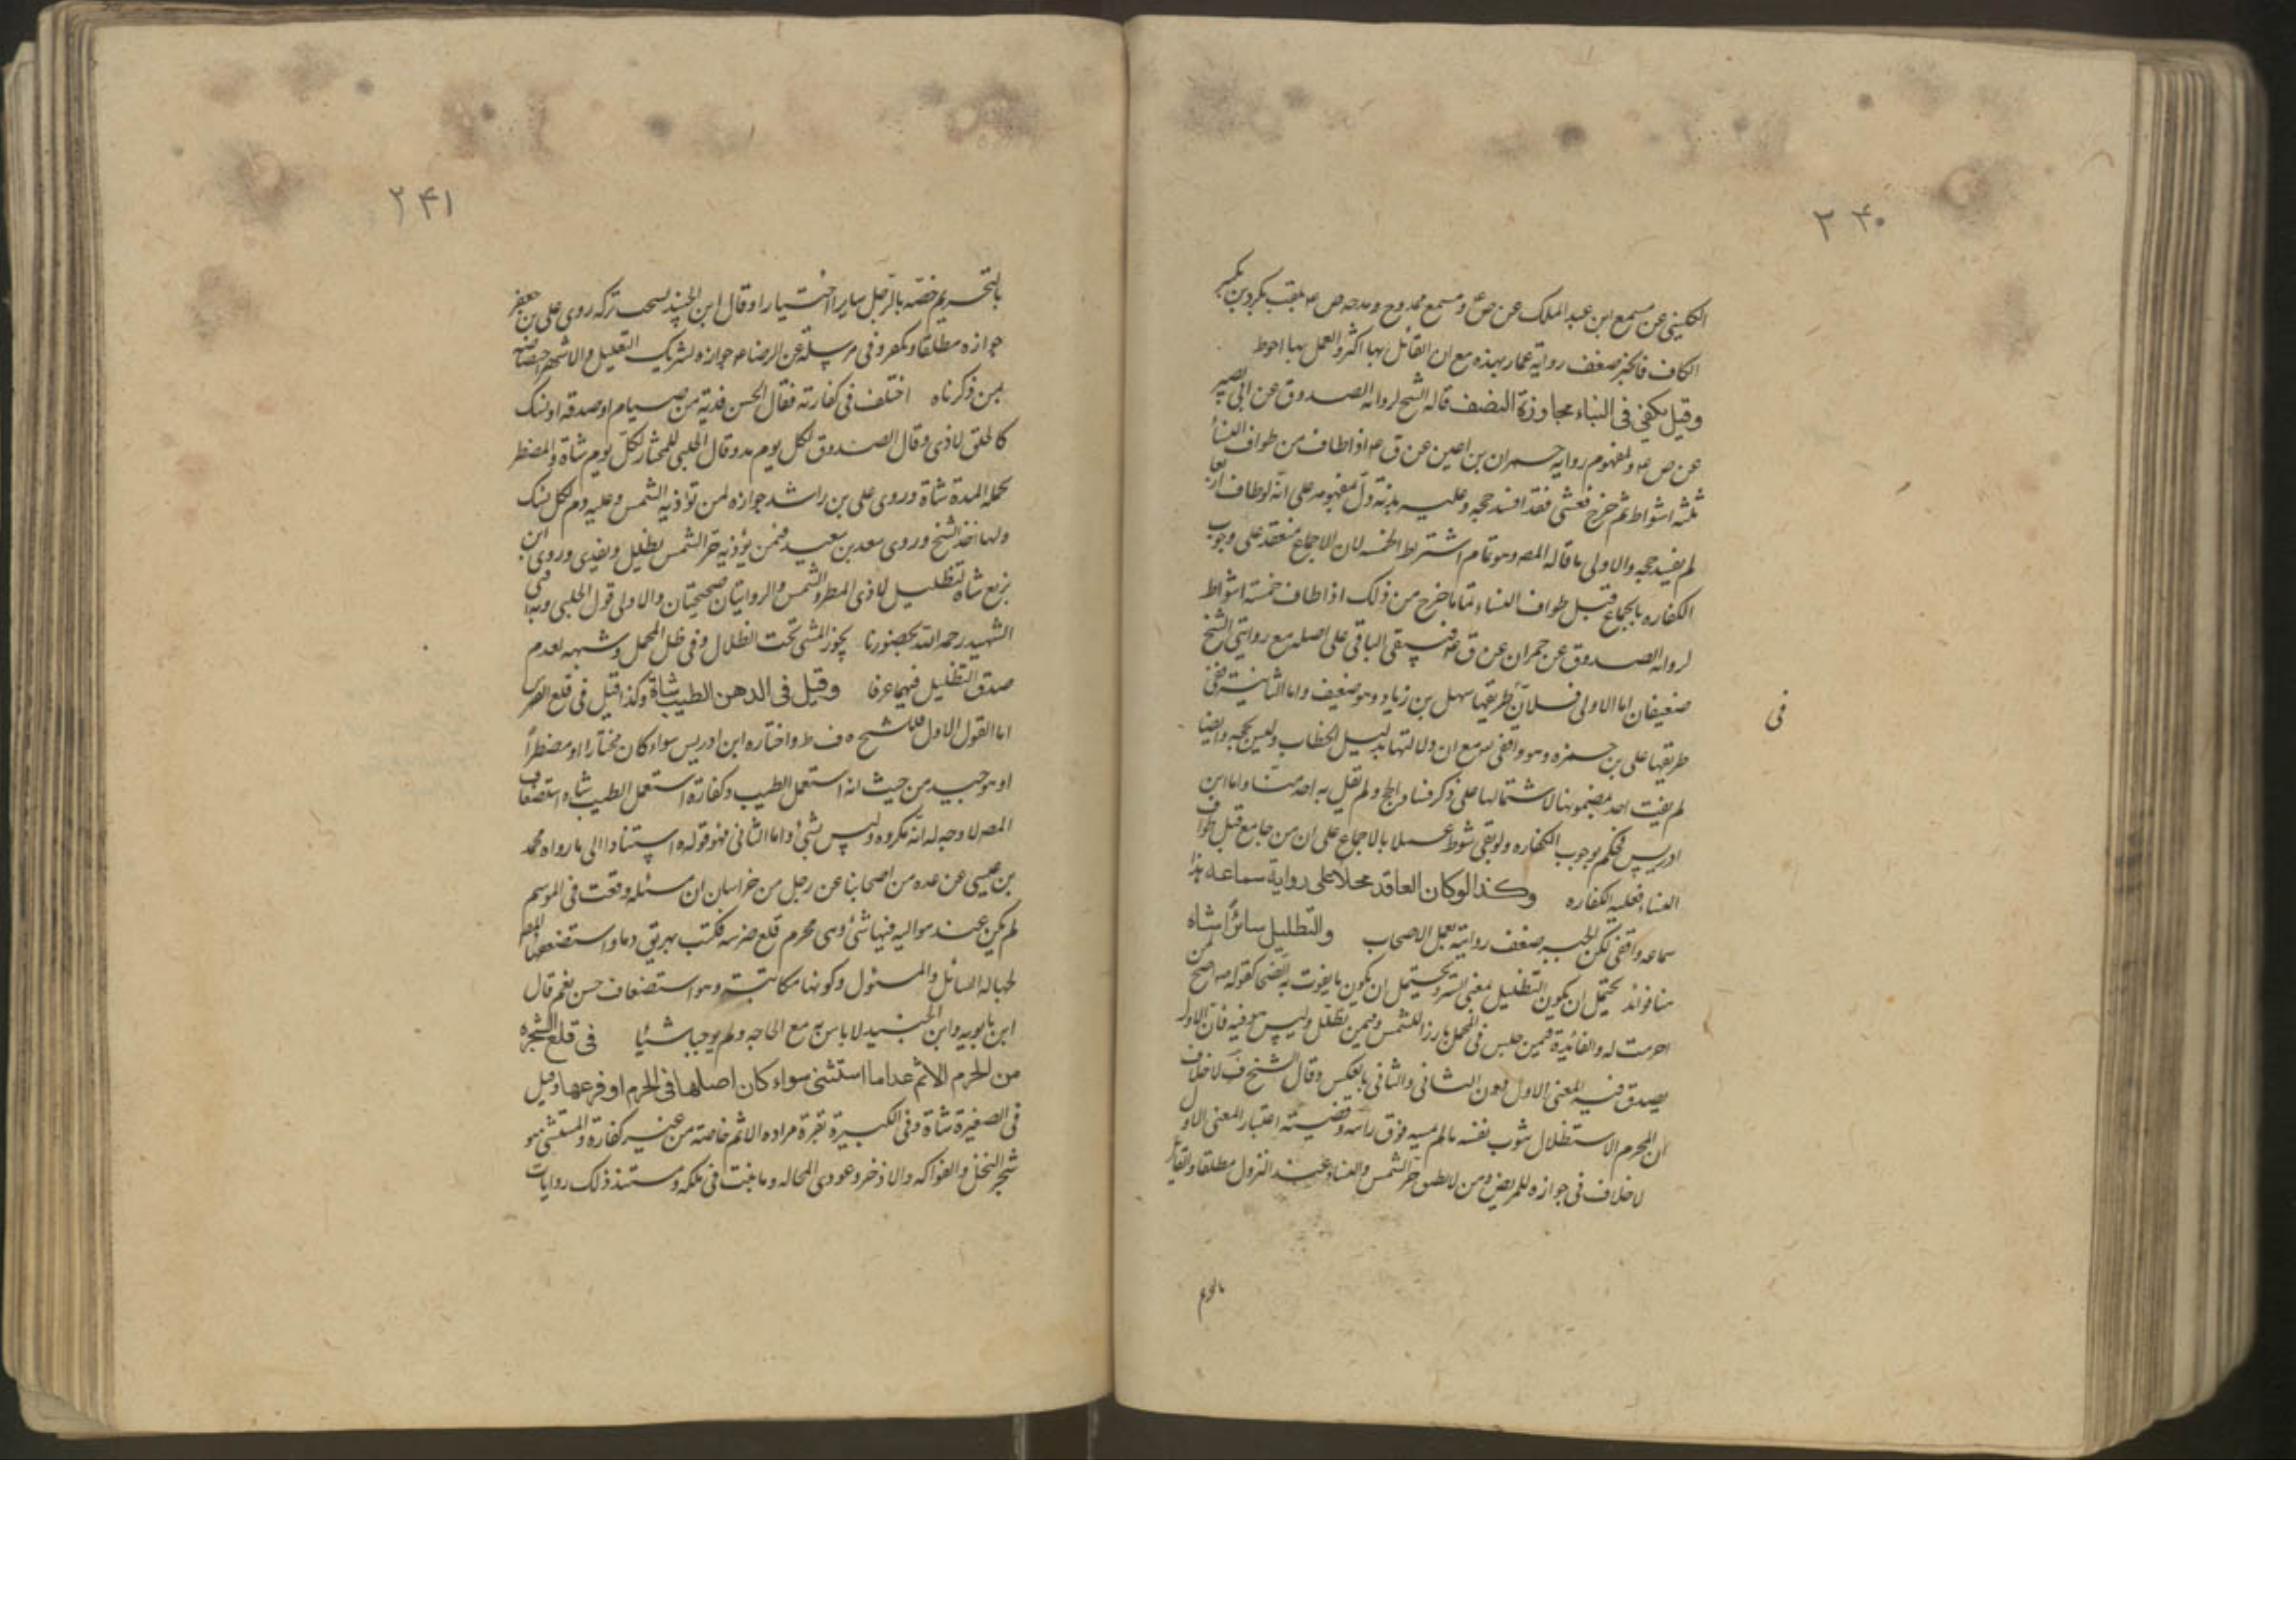 ۲۴۰
الكليني عن مسمع ابن عبد الملك عن ص ع ومسمع ممدوح ومدحه ص ع يلقب بكردين بكسر
الكاف فانجبر ضعف رواية عمار بهذه مع ان القائل بها اكثر والعمل بها احوط
وقيل يكفي في البناء مجاوزة النصف قاله الشيخ لرواية الصدوق عن ابي بصير
عن ص ع ولمفهوم رواية حمران بن اعين عن ق ع اذا طاف من طواف النساء
ثلثة اشواط ثم خرج فغشى فقد افسد حجه وعليه بدنة دل بمفهومه على انه لو طاف اربعا
لم يفسد حجه والاولى ما قاله المصـ وهو تمام اشتراط الخمسة لان الاجماع منعقد على وجوب
الكفاره بالجماع قبل طواف النساء تماما خرج من ذلك اذا طاف خمسة اشواط
لرواية الصدوق عن حمران عن ق ع فيبقى الباقي على اصله مع روايتي الشيخ
ضعيفان اما الاولى فلان طريقها سهل بن زياد وهو ضعيف واما الثانية ففي
في
طريقها علي بن حمزه وهو واقفي مع ان دلالتها بدليل الخطاب وليس بحجه وايضا
لم يفت احد بمضمونها لاشتمالها على ذكر فساد الحج ولم يقل به احد منا واما ابن
ادريس فحكم بوجوب الكفاره ولو بقي شوط عملا بالاجماع على ان من جامع قبل طواف
النساء فعليه الكفاره وكذا لو كان العاقد محلا على رواية سماعه هذا
سماعه واقفي لكن انجبر ضعف روايته بعمل الاصحاب والتظليل سائرا شاة
هنا فوائد يحتمل ان يكون التظليل بمعنى الستر ويحتمل ان يكون ما يفوت به الضحى لقوله ع اضح لمن
احرمت له والفائدة فيمن جلس في المحمل بارزا للشمس وفيمن تظلل وليس هو فيه فان الاول
يصدق فيه المعنى الاول دون الثاني والثاني بالعكس وقال الشيخ ف لا خلاف
ان للمحرم الاستظلال بثوب نفسه ما لم يمسه فوق راسه وقضيته اعتبار المعنى الاول
لا خلاف في جوازه للمريض ومن لا يطيق حر الشمس والنساء وعند النزول مطلقا والقائل
بالتحريم
۲۴۱
بالتحريم خصه بالرجل سايرا اختيارا وقال ابن الجنيد يستحب تركه روى علي بن جعفر
جوازه مطلقا ويكفر وفي مرسلة عن الرضا ع جوازه لشريك العليل والاشهر اختصاصه
بمن ذكرناه اختلف في كفارته فقال الحسن فدية من صيام او صدقة او نسك
كالحلق لاذى وقال الصدوق لكل يوم مد وقال الحلبي للمختار لكل يوم شاة وللمضطر
لجملة المدة شاة وروى علي بن راشد جوازه لمن تؤذيه الشمس وعليه دم لكل نسك
ولها اخذ الشيخ وروى سعد بن سعيد فيمن يؤذيه حر الشمس يظلل ويفدي وروى ابن
بزيع شاة لتظليل لاذى المطر والشمس والروايتان صحيحتان والاولى قول الحلبي وبه افتى
الشهيد رحمه الله بحضورنا يجوز المشي تحت الظلال وفي ظل المحمل وشبهه لعدم
صدق التظليل فيهما عرفا وقيل في الدهن الطيب شاة وكذا قيل في قلع الضرس
اما القول الاول فللشيخ ه ف ط واختاره ابن ادريس سواء كان مختارا او مضطرا
او هو جيد من حيث انه استعمل الطيب وكفارة استعمال الطيب شاه استضعاف
المصـ لا وجه له انه مكروه وليس بشئ واما الثاني فهو قوله ه استنادا الى ما رواه محمد
بن عيسى عن عده من اصحابنا عن رجل من خراسان ان مسئله وقعت في الموسم
لم يكن عند مواليه فيها شئ وهي محرم قلع ضرسه فكتب يهريق دما واستضعفها المصـ
لجهالة السائل والمسئول وكونها مكاتبته وهو استضعاف حسن نعم قال
ابن بابويه وابن الجنيد لا باس به مع الحاجه ولم يوجبا شيئا في قلع الشجرة
من الحرم الاثم عدا ما استثنى سواء كان اصلها في الحرم او فرعها وقيل
في الصغيرة شاة وفي الكبيرة بقرة مراده الاثم خاصة من غير كفارة والمستثنى هو
شجر النخل والفواكه والاذخر وعودي المحاله وما نبت في ملكه ومستند ذلك روايات